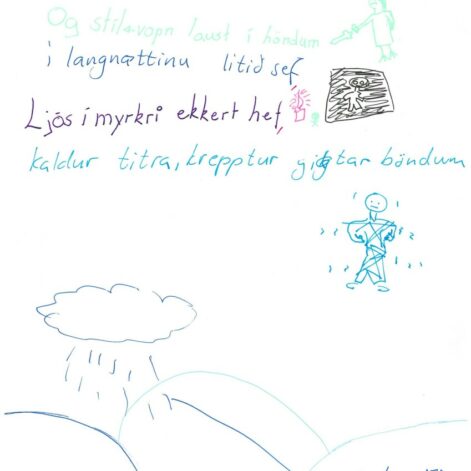 Og stílsvopn laust í höndum
í langnættinu lítið sef
Ljós í myrkri ekkert hef
kaldur titra, krepptur gigtar böndum